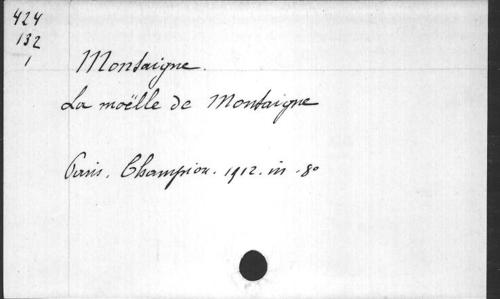 424
132
1
Montaigne.
La moëlle de Montaigne
Paris. Champion. 1912. in-8º